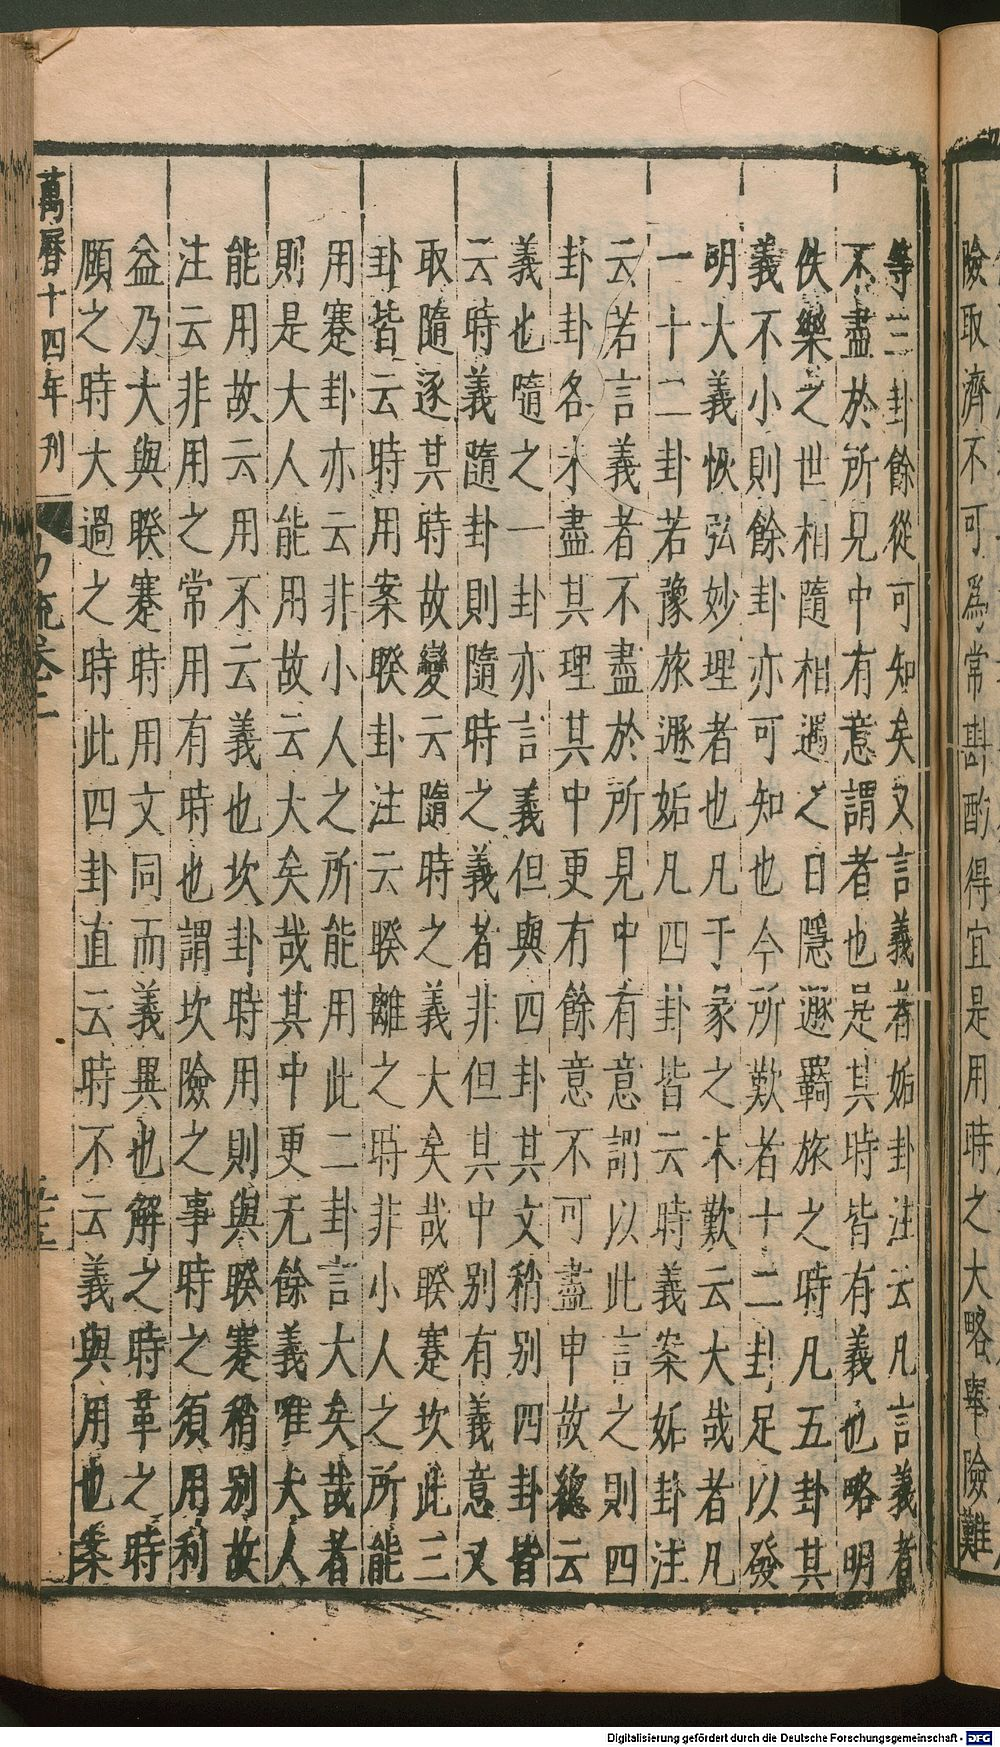 險取濟不可爲常斟酌得宜是用時之大略舉險難
等三卦餘從可知矣又言義者姤卦注云凡言義者
不盡於所見中有意謂者也是其時皆有義也略明
佚樂之世相隨相遇之日隱遯羇旅之時凡五卦其
義不小則餘卦亦可知也今所歎者十二卦足以發
明大義恢弘妙理者也凡于彖之末歎云大哉者凡
一十二卦若豫旅遯姤凡四卦皆云時義案姤卦注
云若言義者不盡於所見中有意謂以此言之則四
卦卦各未盡其理其中更有餘意不可盡申故緫云
義也隨之一卦亦言義但與四卦其文稍别四卦皆
云時義隨卦則隨時之義者非但其中别有義意又
取隨逐其時故變云隨時之義大矣哉睽蹇坎此三
卦皆云時用案睽卦注云睽離之時非小人之所能
用蹇卦亦云非小人之所能用此二卦言大矣哉者
則是大人能用故云大矣哉其中更无餘義唯大人
能用故云用不云義也坎卦時用則與睽蹇稍别故
注云非用之常用有時也謂坎險之事時之須用利
益乃大與睽蹇時用文同而義異也解之時革之時
頤之時大過之時此四卦直云時不云義與用也案
萬曆十四年刊